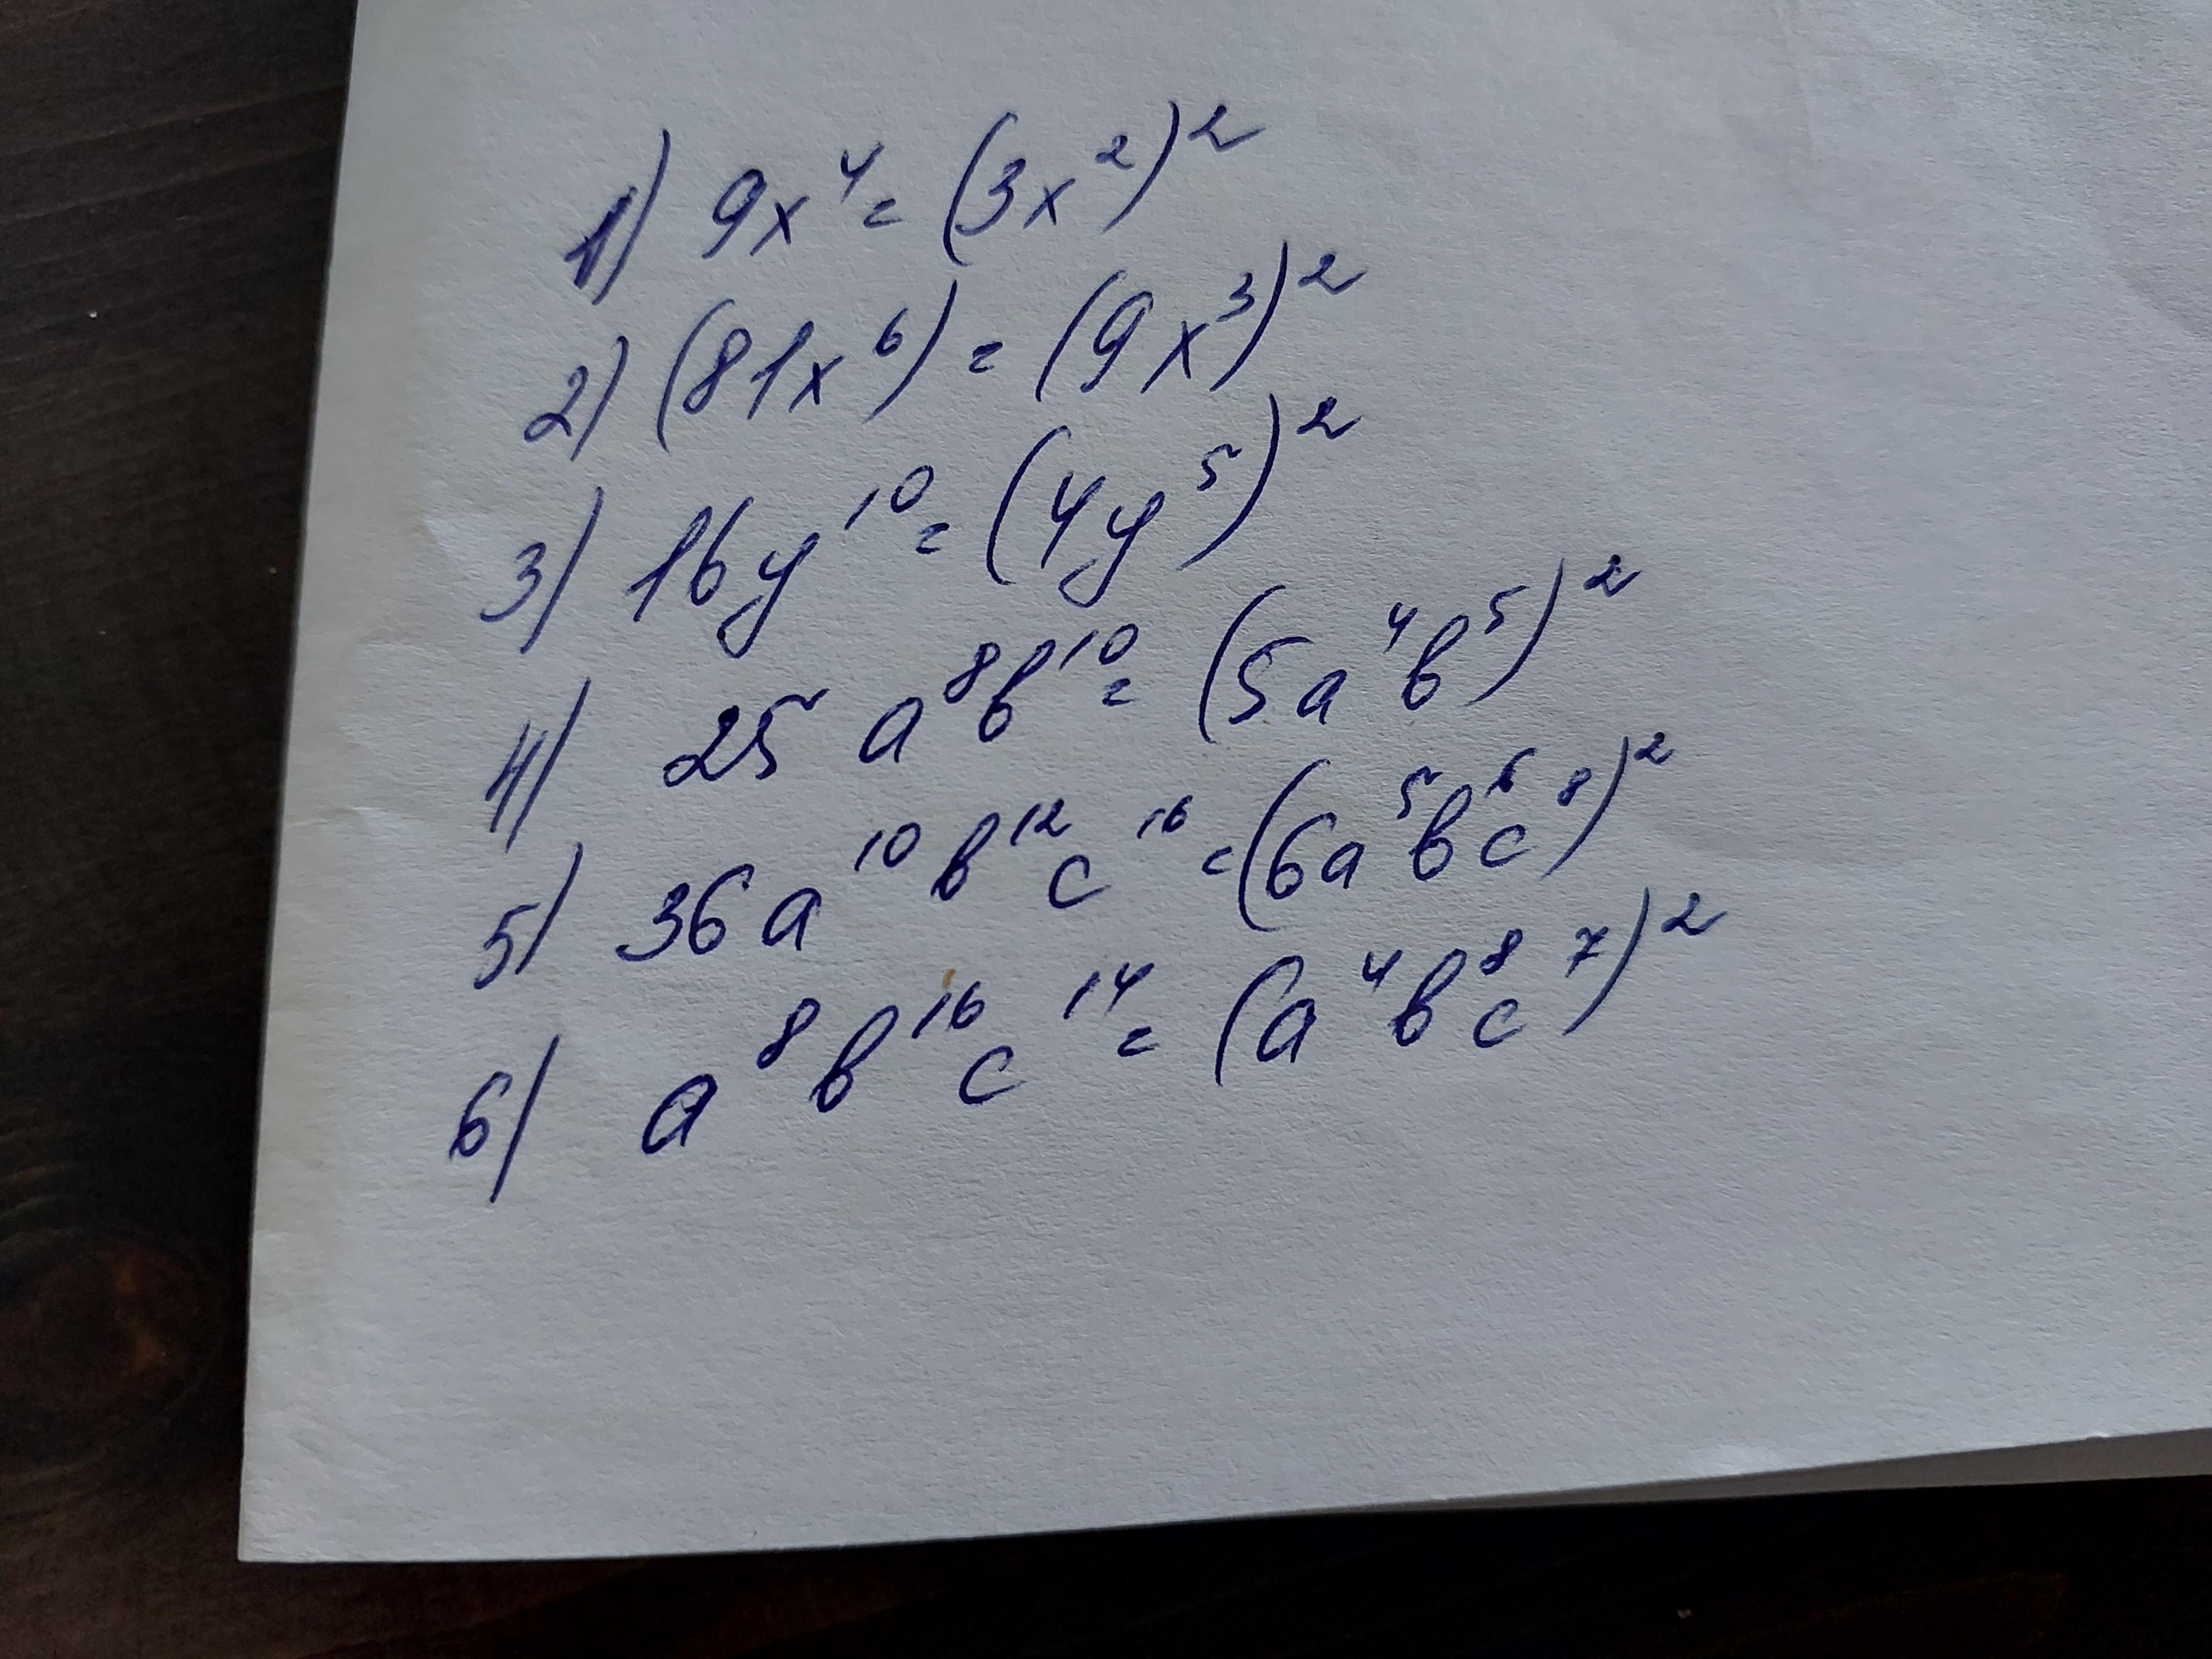 1) 9x⁴ = (3x²)²
2) (81x⁶) = (9x³)²
3) 16y¹⁰ = (4y⁵)²
4) 25 a⁸b¹⁰ = (5a⁴b⁵)²
5) 36a¹⁰b¹²c¹⁶ = (6a⁵b⁶c⁸)²
6) a⁸b¹⁶c¹⁴ = (a⁴b⁸c⁷)²